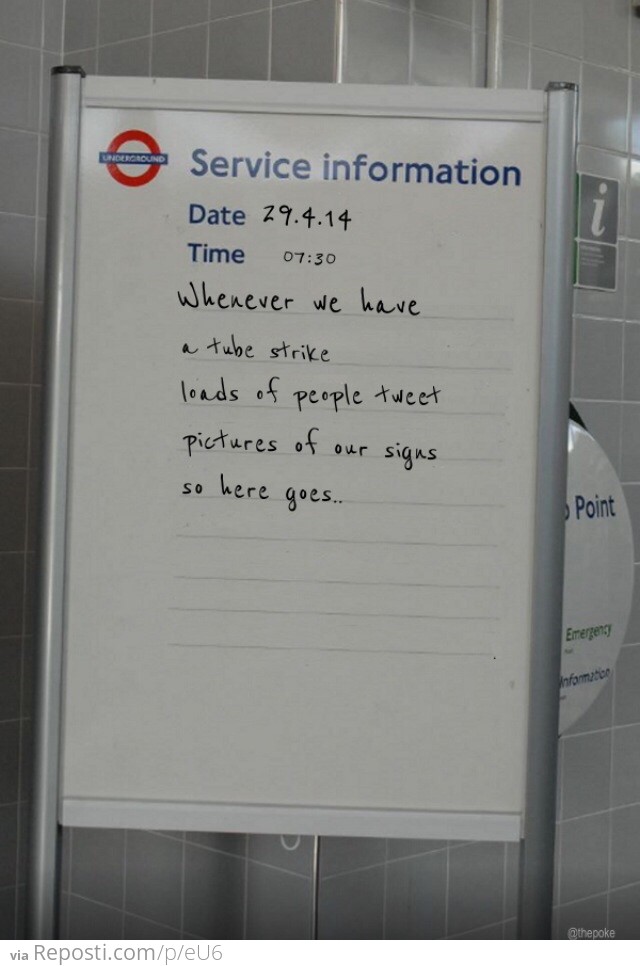 UNDERGROUND
Service information
Date 29.4.14
Time 07:30
Whenever we have
a tube strike
loads of people tweet
pictures of our signs
so here goes..
i
Point
Emergency
Information
@thepoke
via Reposti.com/p/eU6